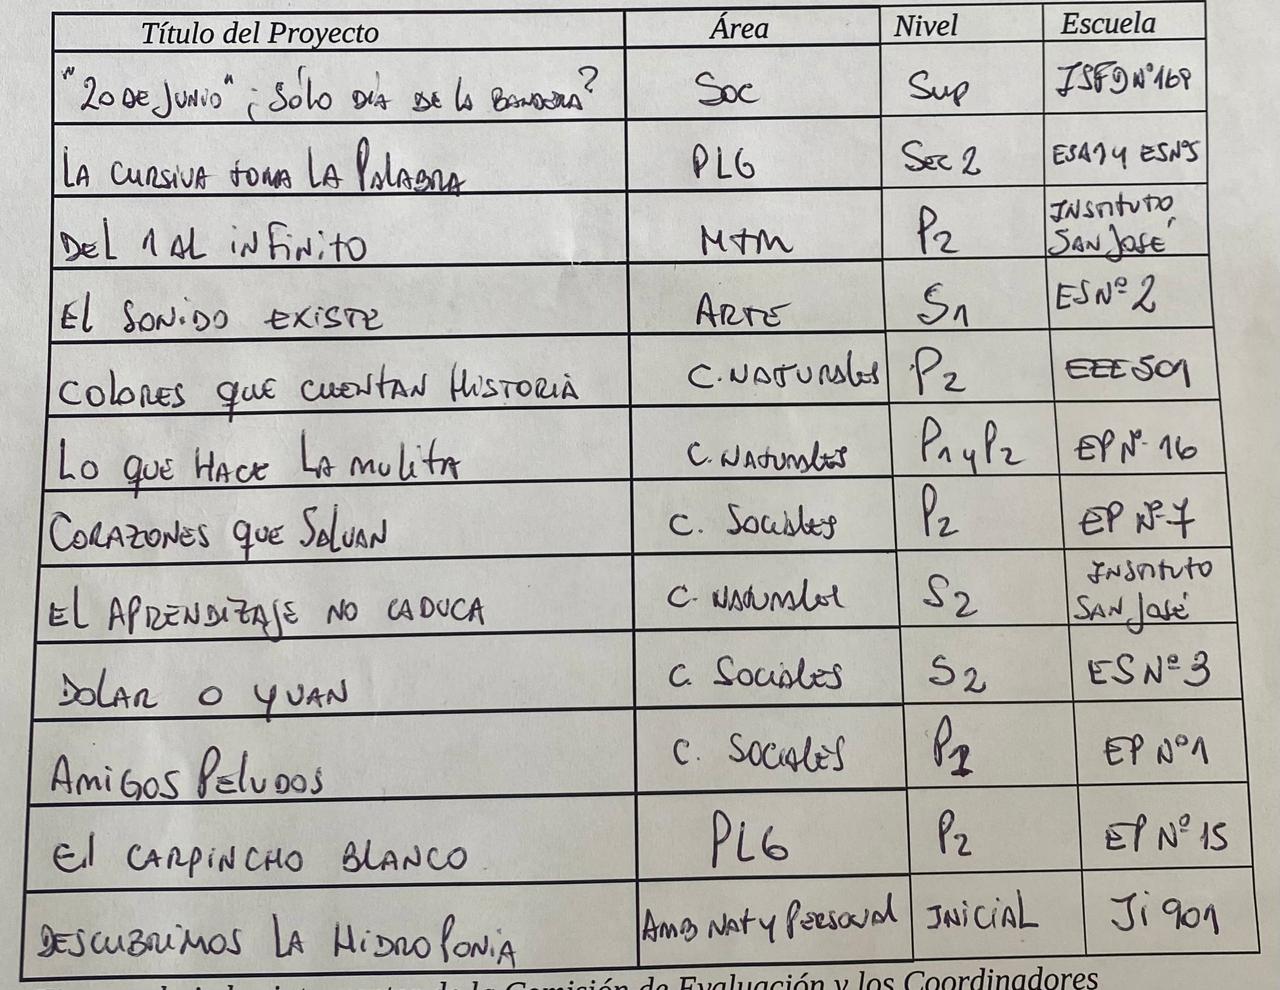 Título del Proyecto Área Nivel Escuela
"20 DE JUNIO" ¿SÓLO DÍA DE LA BANDERA? SOC Sup ISFD Nº169
LA CURSIVA TOMA LA PALABRA PLG Sec 2 ESA1 y ESNº5
DEL 1 AL INFINITO MTM P2 INSTITUTO SAN JOSÉ
El SONIDO EXISTE ARTE S1 ES Nº 2
COLORES QUE CUENTAN HISTORIA C. NATURALES P2 EEE 501
LO QUE HACE LA MULITA C. NATURALES P1 y P2 EP Nº 16
CORAZONES QUE SALVAN C. SOCIALES P2 EP Nº 7
EL APRENDIZAJE NO CADUCA C. NATURALES S2 INSTITUTO SAN JOSÉ
DOLAR O YUAN C. SOCIALES S2 ES Nº 3
AMIGOS PELUDOS C. SOCIALES P1 EP Nº1
El CARPINCHO BLANCO PLG P2 EP Nº 15
DESCUBRIMOS LA HIDROPONIA AMB NAT y PERSONAL INICIAL Ji 901
de la Comisión de Evaluación y los Coordinadores